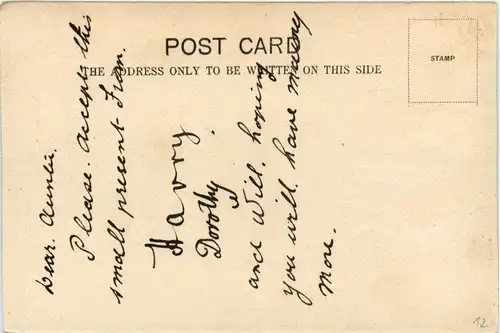 POST CARD
THE ADDRESS ONLY TO BE WRITTEN ON THIS SIDE
STAMP
Dear. Auntie.
Please. accepts this
small present From.
Harry.
Dorothy
and Will, hoping
you will have many
more.
12